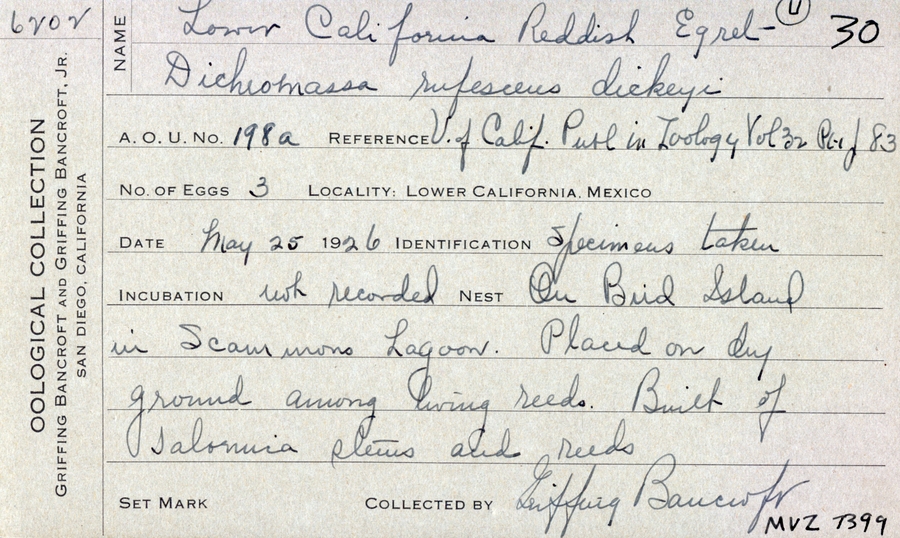 6202
OOLOGICAL COLLECTION
GRIFFING BANCROFT AND GRIFFING BANCROFT, JR.
SAN DIEGO, CALIFORNIA
NAME Lower California Reddish Egret- U 30
Dichromassa rufescens dickeyi
A. O. U. No. 198a REFERENCE U. of Calif. Publ in Zoology Vol 32 83
No. OF EGGS 3 LOCALITY: LOWER CALIFORNIA, MEXICO
DATE May 25 1926 IDENTIFICATION Specimens taken
INCUBATION not recorded NEST On Bird Island
in Scammons Lagoon. Placed on dry
ground among living reeds. Built of
stems and reeds
SET MARK COLLECTED BY Griffing Bancroft
MVZ 7399